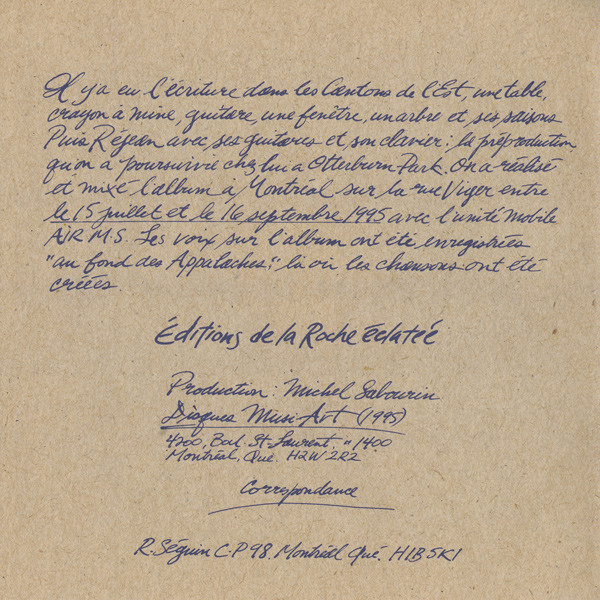 Il y a eu l'écriture dans les Cantons de l'Est, une table,
crayon à mine, guitare, une fenêtre, un arbre et ses saisons
Puis Réjean avec ses guitares et son clavier: la préproduction
qu'on a poursuivie chez lui à Otterburn Park. On a réalisé
et mixé l'album à Montréal sur la rue Viger entre
le 15 juillet et le 16 septembre 1995 avec l'unité mobile
AIR M.S. Les voix sur l'album ont été enregistrées
"au fond des Appalaches" là où les chansons ont été
créées.
Éditions de la Roche éclatée
Production: Michel Sabourin
Disques Musi-Art (1995)
4200, Boul. St-Laurent. " 1400
Montréal, Qué. H2W 2R2
Correspondance
R. Séguin C.P 98. Montréal Qué. H1B5K1